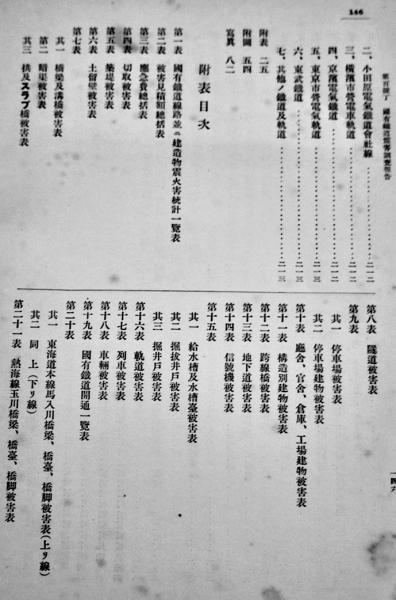 146
震災調査報告
二、小田原電氣鐵道會社線……二一二
三、橫濱市營電車軌道……二一二
四、京濱電氣鐵道……二一二
五、東京市營電氣軌道……二一三
六、東武鐵道……二一三
七、其他ノ鐵道及軌道……二一三
附表 二五
附圖 五四
寫眞 八二
附表目次
第一表 國有鐵道線路並ニ建造物震火害統計一覽表
第二表 被害見積額總括表
第三表 應急費總括表
第四表 切取被害表
第五表 築堤被害表
第六表 土留壁被害表
第七表
其一 橋梁及溝橋被害表
其二 暗渠被害表
其三 拱及スラブ橋被害表
第八表 隧道被害表
第九表
其一 停車場被害表
其二 停車場建物被害表
第十表 廳舍、官舍、倉庫、工場建物被害表
第十一表 構造別建物被害表
第十二表 跨線橋被害表
第十三表 地下道被害表
第十四表 信號機被害表
第十五表
其一 給水槽及水槽臺被害表
其二 掘拔井戶被害表
其三 掘井戶被害表
第十六表 軌道被害表
第十七表 列車被害表
第十八表 車輛被害表
第十九表 國有鐵道開通一覽表
第二十表
其一 東海道本線馬入川橋梁、橋臺、橋脚被害表(上リ線)
其二 同 上(下リ線)
第二十一表 熱海線玉川橋梁、橋臺、橋脚被害表
一四六